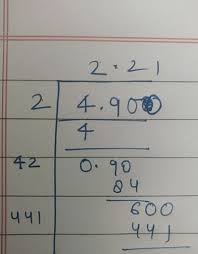 2.21
2 4.900
4
42 0.90
84
441 600
441